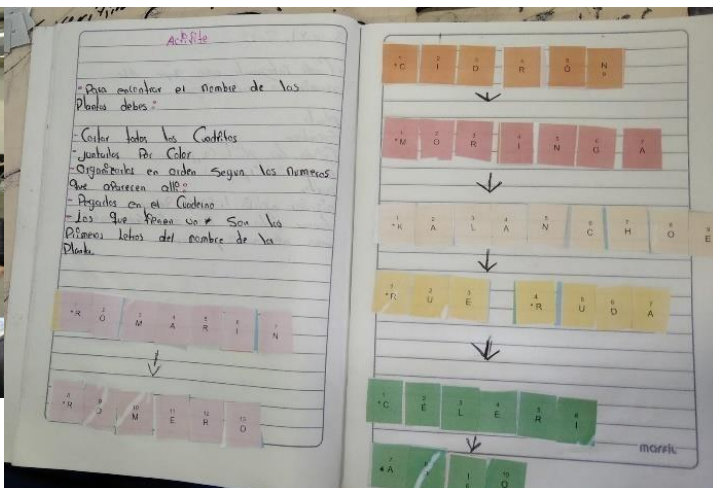 Actifite
- Para encontrar el nombre de las
Plantas debes:
- Cortar todos los Cuadritos
- Juntarlos Por Color
- Organizarlos en orden Segun los Numeros
Que aparecen allí:
- Pegarlos en el Cuaderno
- Los que tienen un * Son las
Primeras letras del nombre de la
Planta.
1 2 3 4 5 6 7
*R O M A R I N
8 9 10 11 12 13
*R O M E R O
1 2 3 4 5 N
*C I D R Ó
1 2 3 4 5 6 7
*M O R I N G A
1 2 3 4 5 6 7 8 9
*K A L A N C H O E
1 2 3 4 5 6 7
*R U E *R U D A
1 2 3 4 5 6
*C É L E R I
7 10
*A I O
marfil